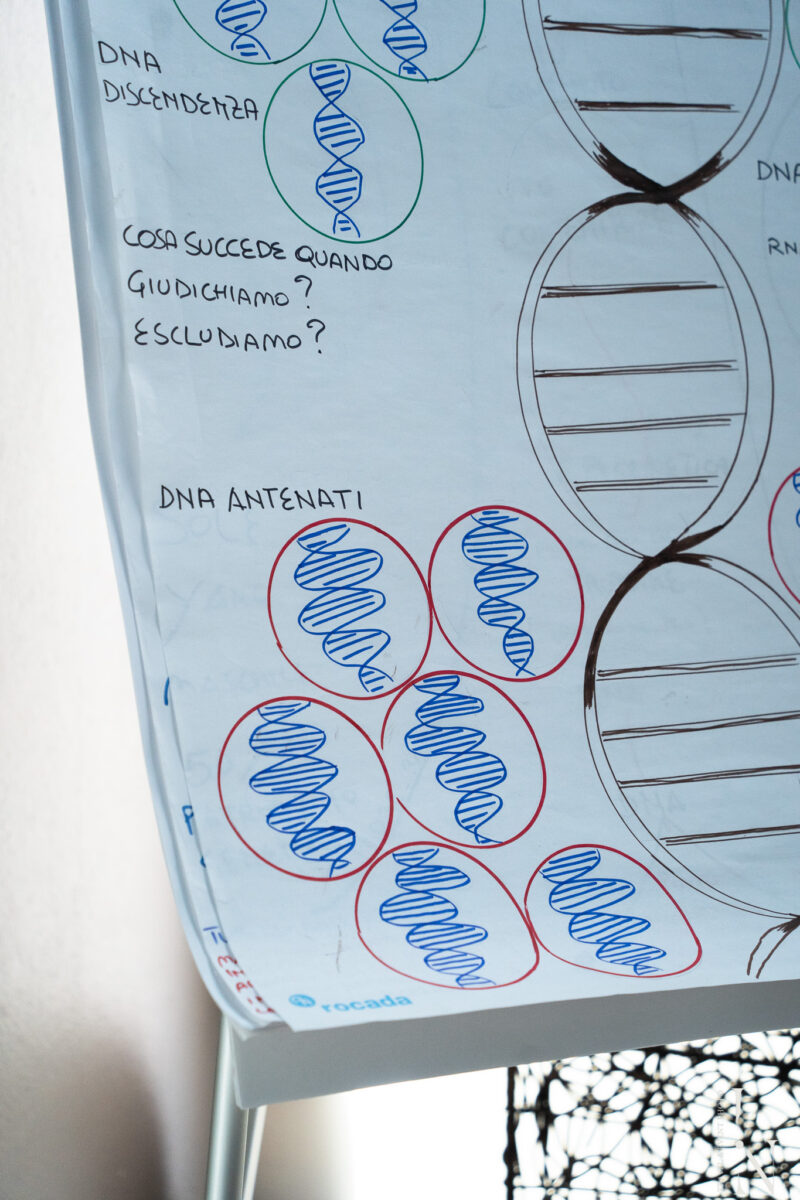 DNA
DISCENDENZA
COSA SUCCEDE QUANDO
GIUDICHIAMO?
ESCLUDIAMO?
DNA
RN
DNA ANTENATI
rocada